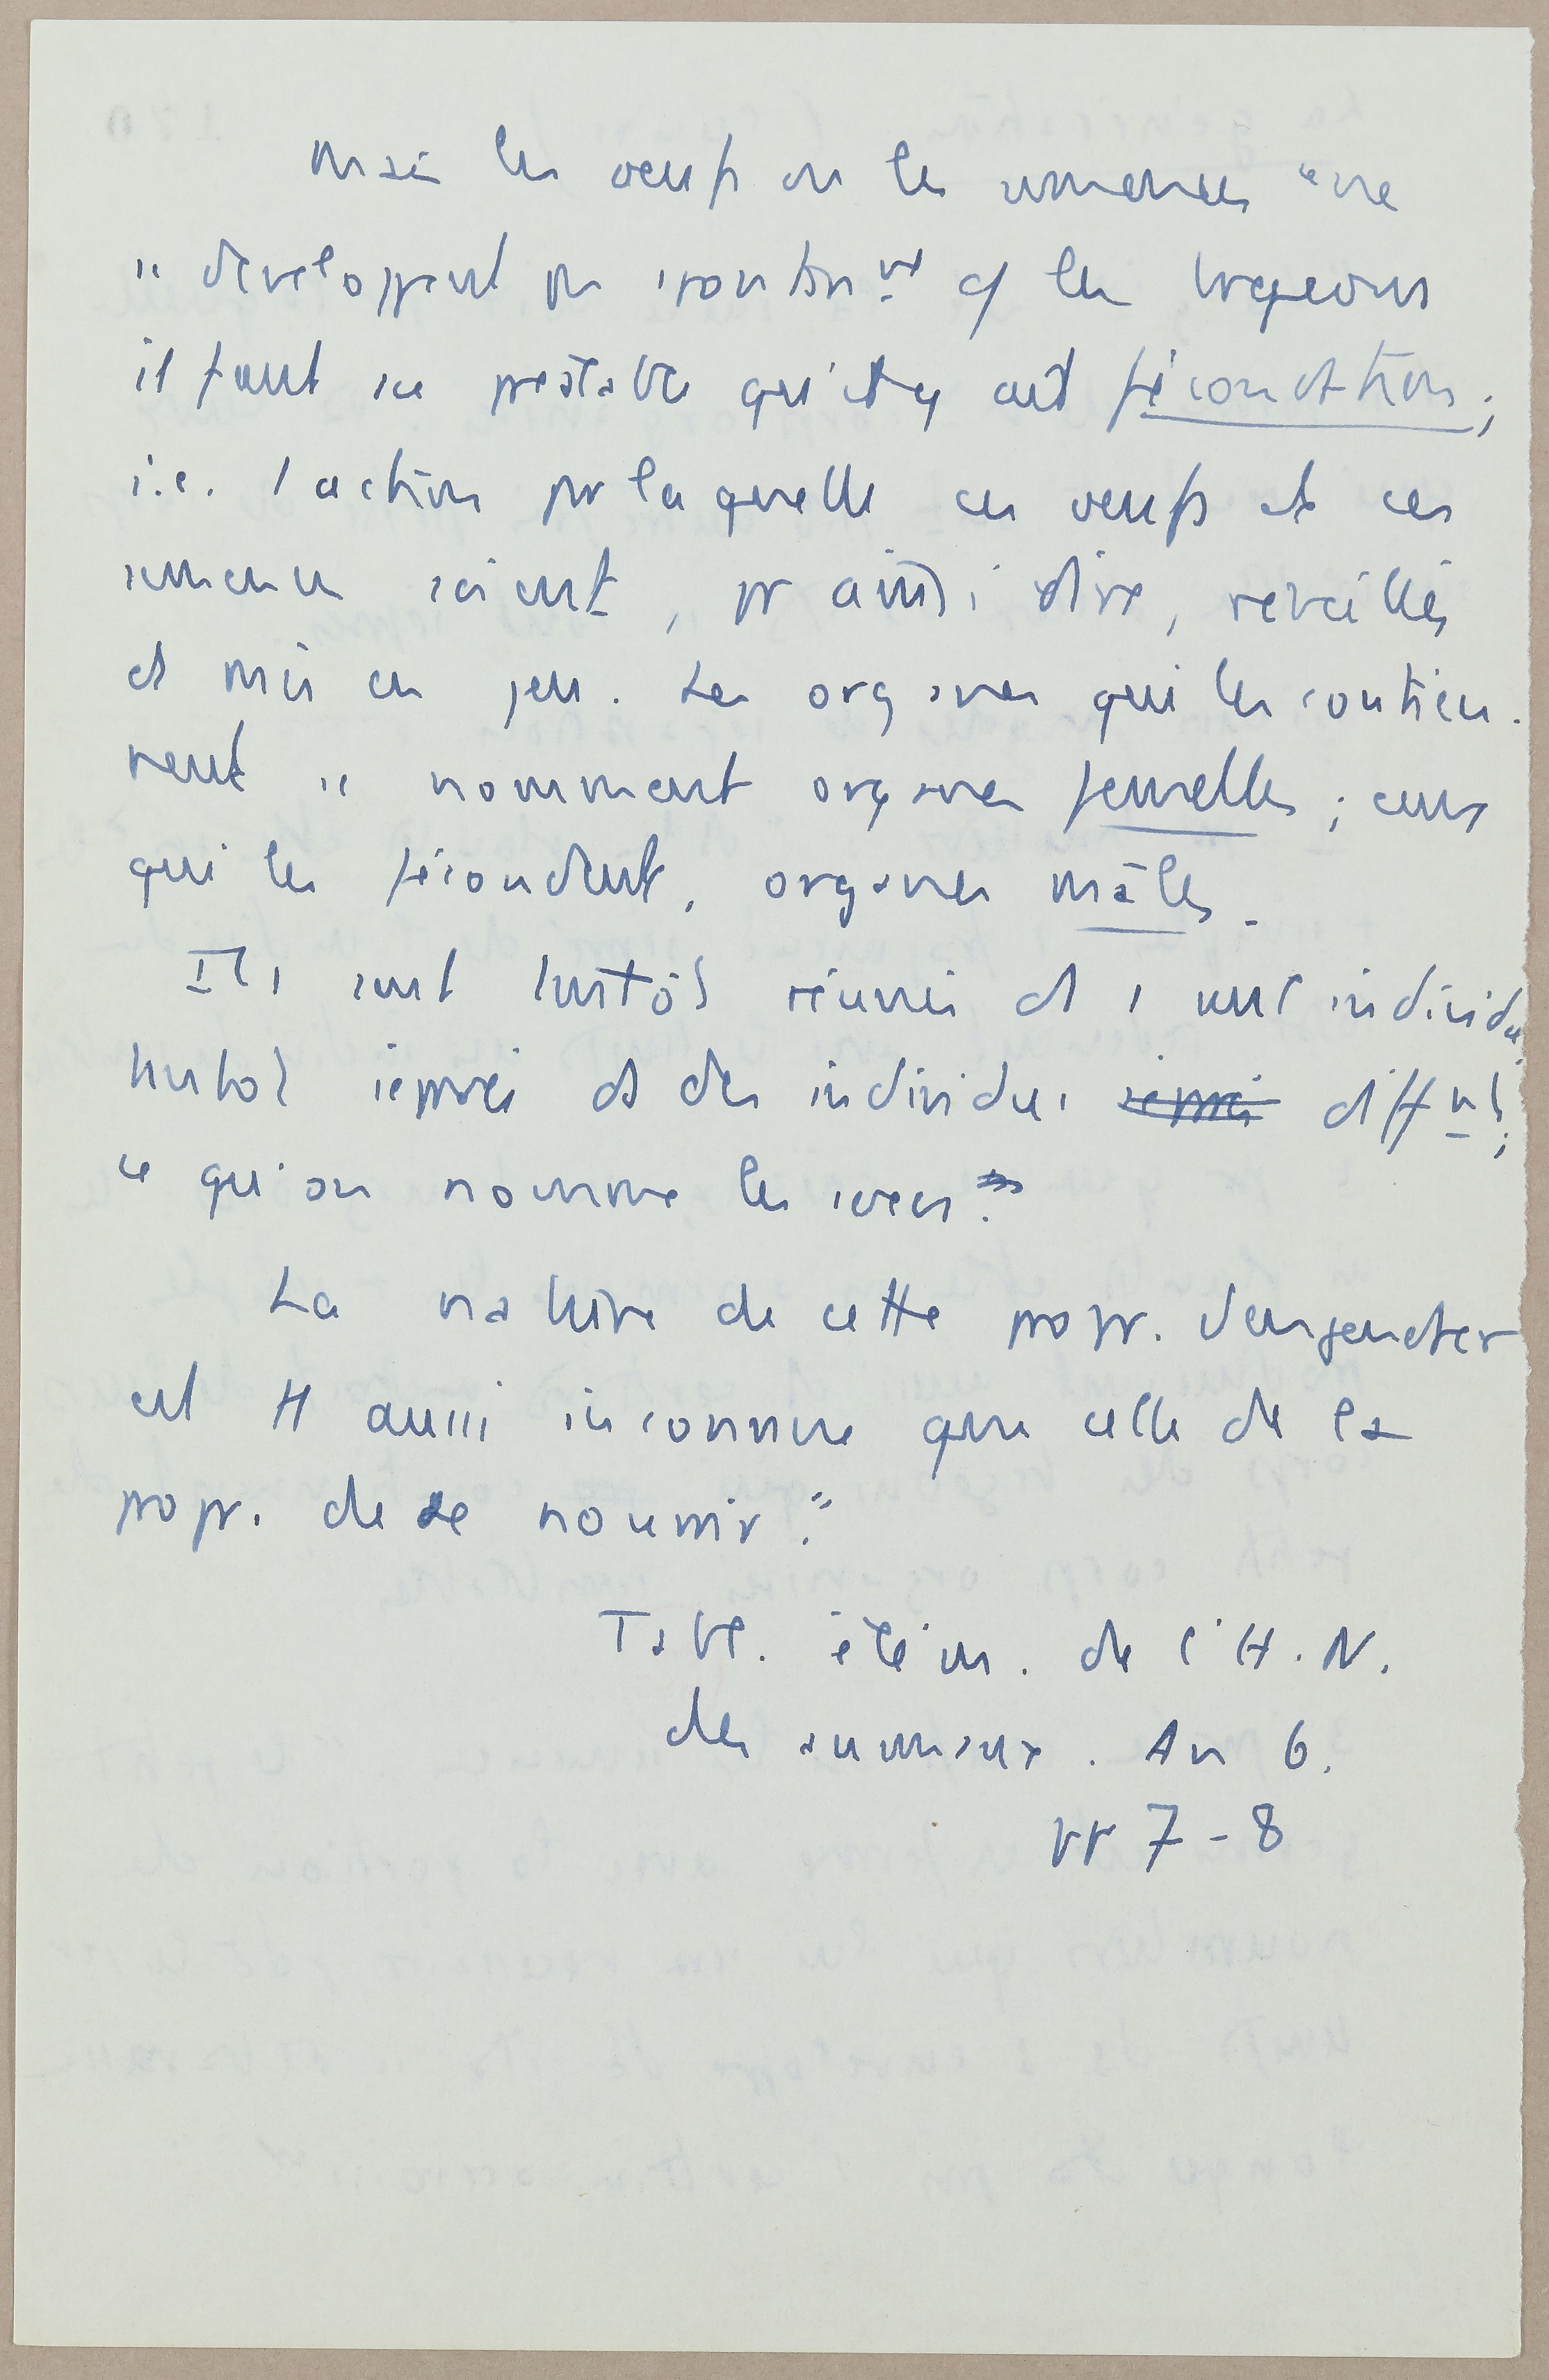 Mais les oeufs ou les semences "ne
se développent pas spontanᵐᵗ cf les bourgeons
il faut au préalable qu'il y ait fécondation ;
i.e. l'action par laquelle ces oeufs et ces
semences soient, pr ainsi dire, réveillés
et mis en jeu. Les organes qui les contien-
nent se nomment organes femelles ; ceux
qui les fécondent, organes mâles.
Ils sont tantôt réunis ds 1 seul individu,
tantôt séparés ds des individus séparés diffts ;
ce qu'on nomme les sexes."
La nature de cette propr. d'engendrer
est tt aussi inconnue que celle de la
propr. de se nourrir."
Tabl. élém. de l'H. N.
des animaux. An 6.
pp 7-8